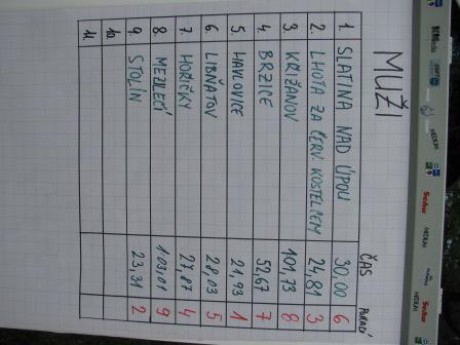 MUŽI
ČAS PORADÍ
1. SLATINA NAD ÚPOU 30,00 6
2. LHOTA ZA ČERV. KOSTELCEM 24,81 3
3. KŘIŽANOV 101,73 8
4. BRZICE 52,67 7
5. HAVLOVICE 21,93 1
6. LIBŇATOV 28,03 5
7. HOŘIČKY 27,87 4
8. MEZILEČÍ 103,01 9
9. STOLÍN 23,31 2
10.
11.